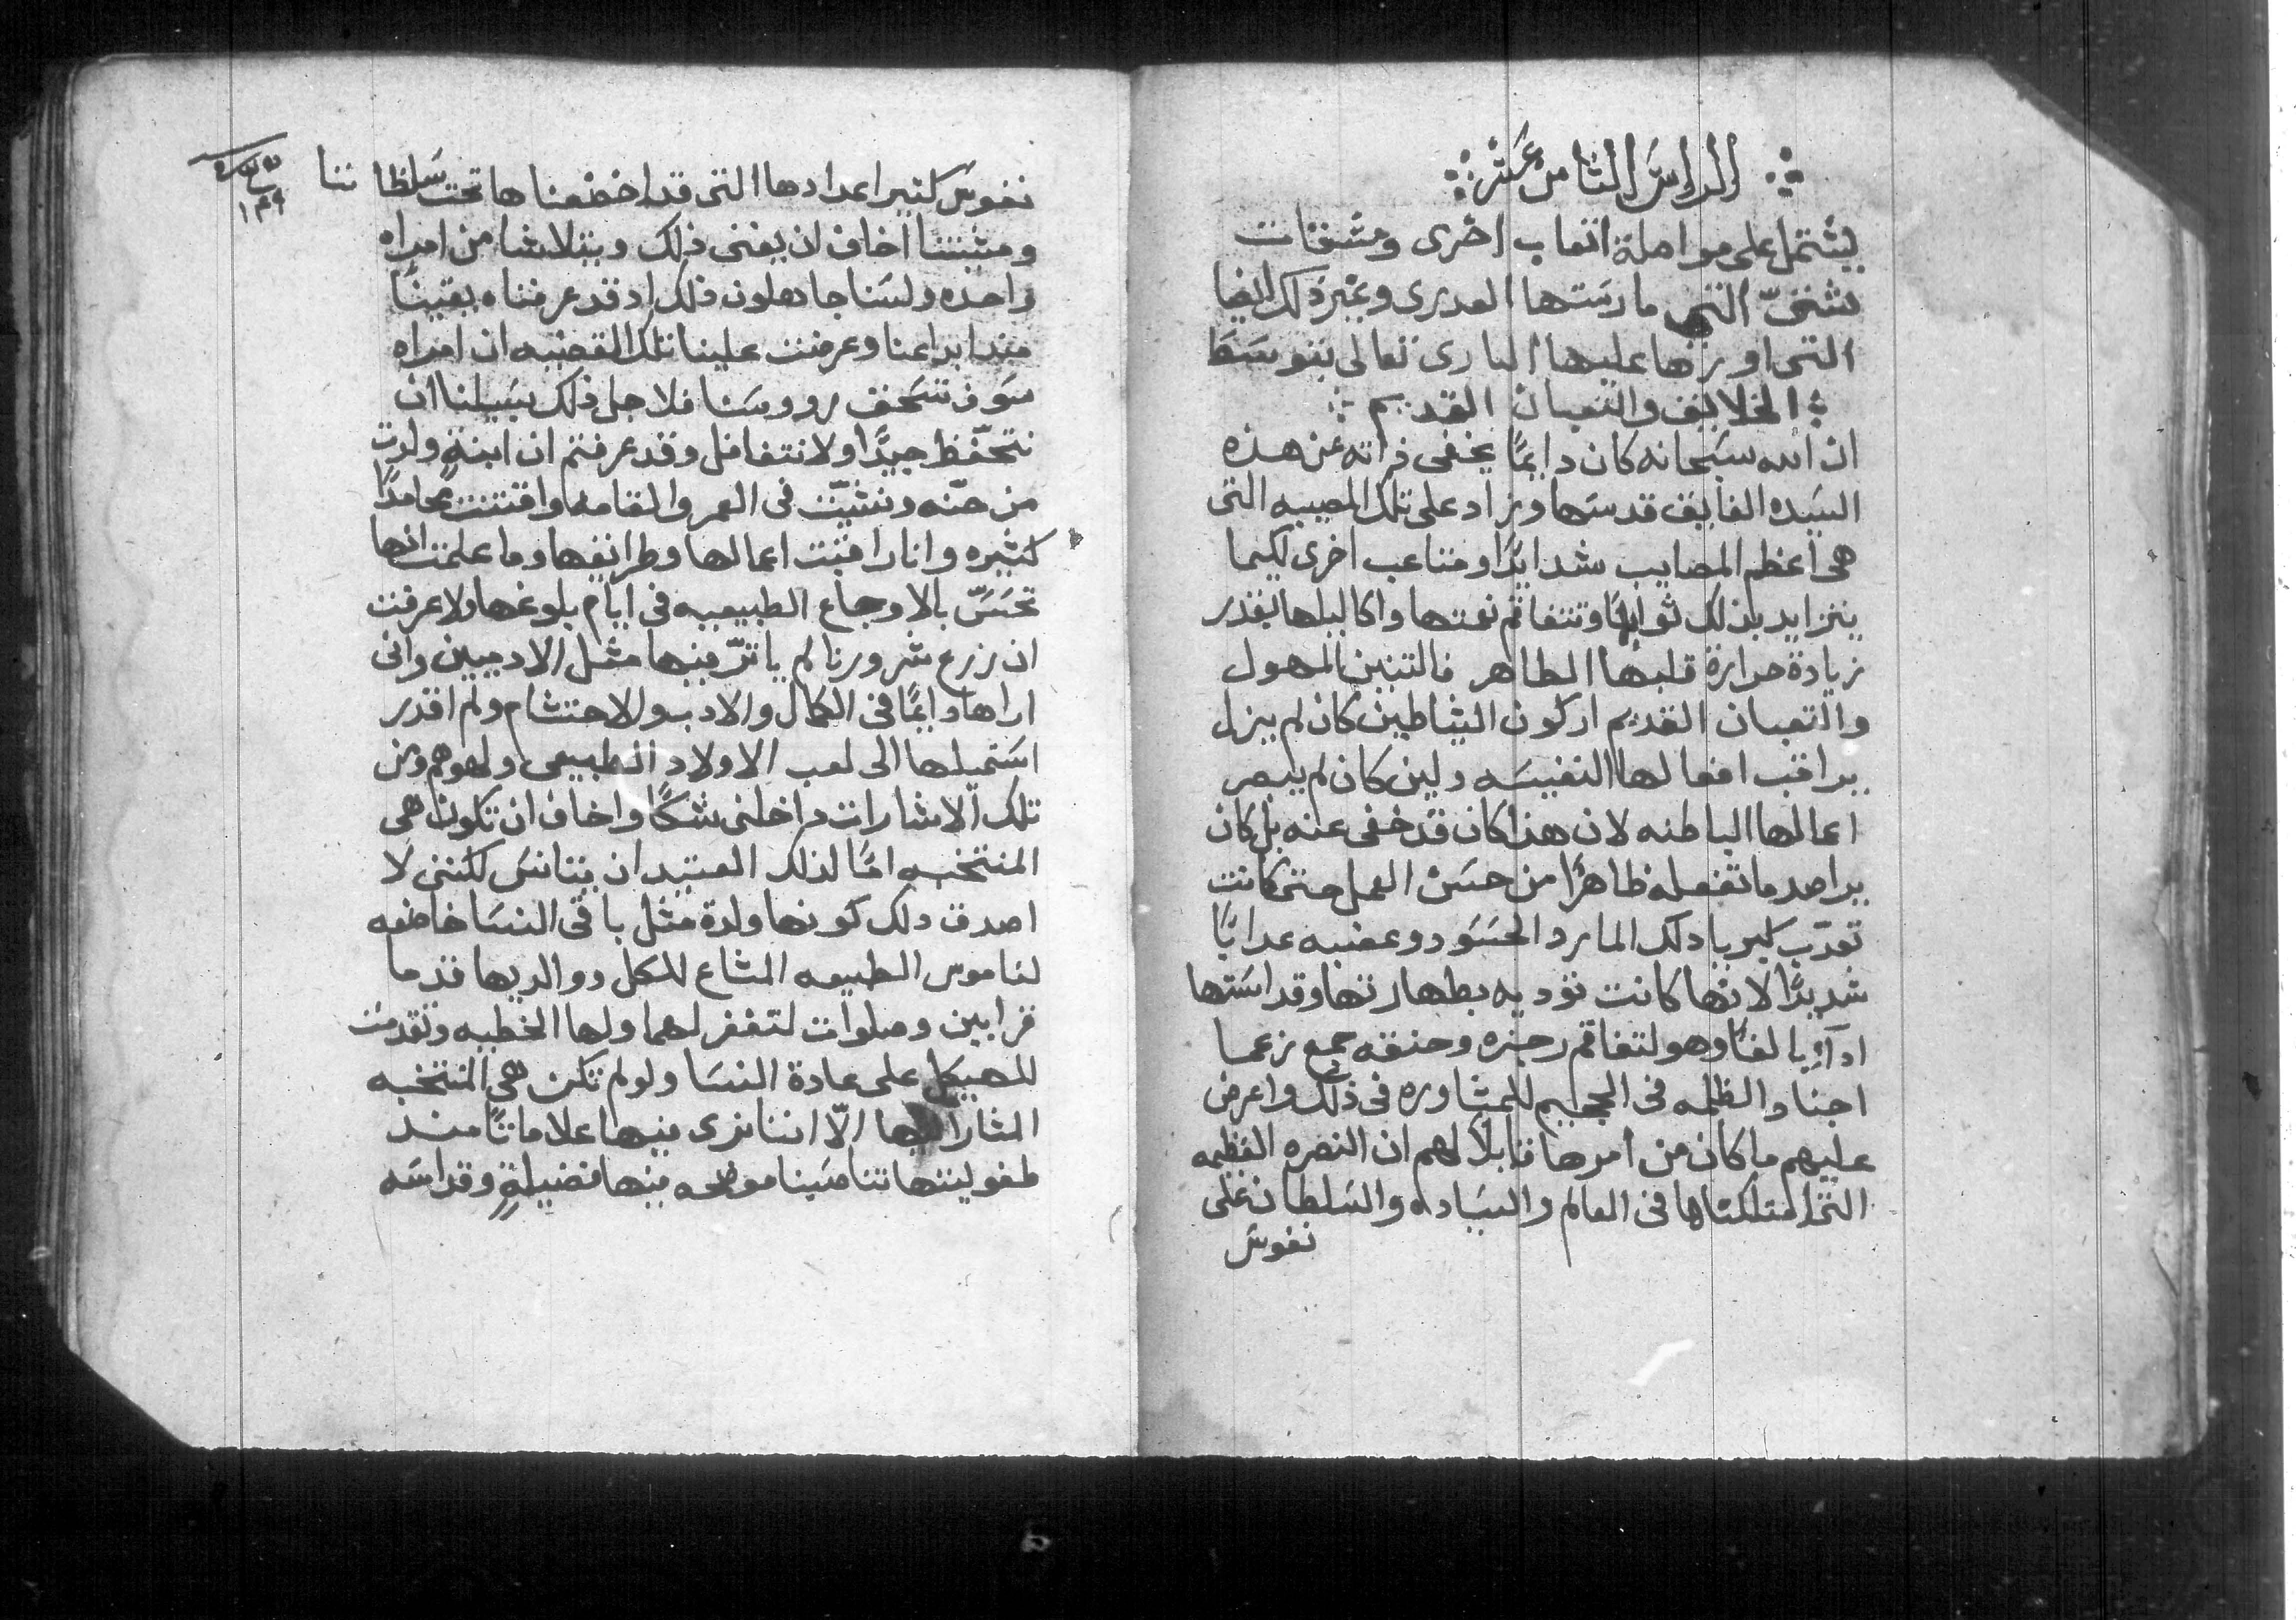 الراس الثامن عشر
يشتمل على مواصلة اتعاب اخرى ومشقات
شتىّ التى مارستها العدرى وغير ذلك ايضا
التى اوردها عليها البارى تعالى بتوسط
الخلايف والتعبان القديم
ان الله سبحانه كان دايمًا يخفى ذاته عن هذه
السيده الفايف قدسها وزاد على تلك المصيبه التى
هى اعظم المصايب شدايدًا ومتاعب اخرى لكيما
يتزايد بذلك ثوابها وتتفاقم نعمتها واكاليلها بقدر
زيادة حرارة قلبها الطاهر فالتنين المهول
والتعبان القديم اركون الشاطين كان لم يزل
يراقب افعالها النفيسه ولين كان لم يبصر
اعمالها الباطنه لان هذا كان قد خفى عنه بل كان
يراصد ما تفعله ظاهرًا من حسن العمل حتى كانت
تعدّب كبريا دلك المارد الحسود وغضبه عدابًا
شديدًا لانها كانت توديه بطهارتها وقداستها
ادآءٍ بالغًا وهو لتفاقم رجزه وحنقه جمع زعما
اجناد الظلمه فى الجحيم للمشاوره فى ذلك واعرض
عليهم ما كان من امرها قابلاً لهم ان النصره العظيمه
التى امتلكتاها فى العالم والسياده والسلطان على
نفوس
نفوس كثير اعدادها التى قد اخضعناها تحت سلطاننا
ومشيتنا اخاف ان يفنى ذلك ويتلاشا من امراه
واحده ولسنا جاهلون ذلك اد قد عرفناه يقينًا
مند ابداعنا وعرضت علينا تلك القضيه ان امراه
سوف تسحق رووسنا فلاجل ذلك يسيلنا ان
نتحفّظ جيدًا ولا نتغافل وقد عرفتم ان ابنةٍ ولدت
من حنّه ونشيّت فى العمر والقامه واقتنت محامدًا
كثيره وانا راقبت اعمالها وطرايقها وما علمت انها
تحسّ بالاوجاع الطبيعيه فى ايام بلوغها ولا عرفت
ان زرع شرورنا لم ياثرّ فيها مثل الادميين وانى
اراها دايمًا فى الكمال والادب والاحتشام ولم اقدر
استميلها الى لعب الاولاد الطبيعى ولهوهم ومن
تلك الاشارات داخلنى شكًا واخاف ان تكون هى
المنتخبه امًا لذلك العتيد ان يتانس لكننى لا
اصدق دلك كونها ولدة مثل باقى النسا خاضعه
لناموس الطبيعه المشاع للكل ووالديها قدما
قرابين وصلوات لتغفر لهما ولها الخطيه وتقدمت
للهيكل على عادة النسا ولو لم تكن هى المنتخبه
المشار اليها الاّ اننا نرى فيها علاماتًا مند
طفوليتها تناصبنا موضحه فيها فضيلةٍ وقداسه